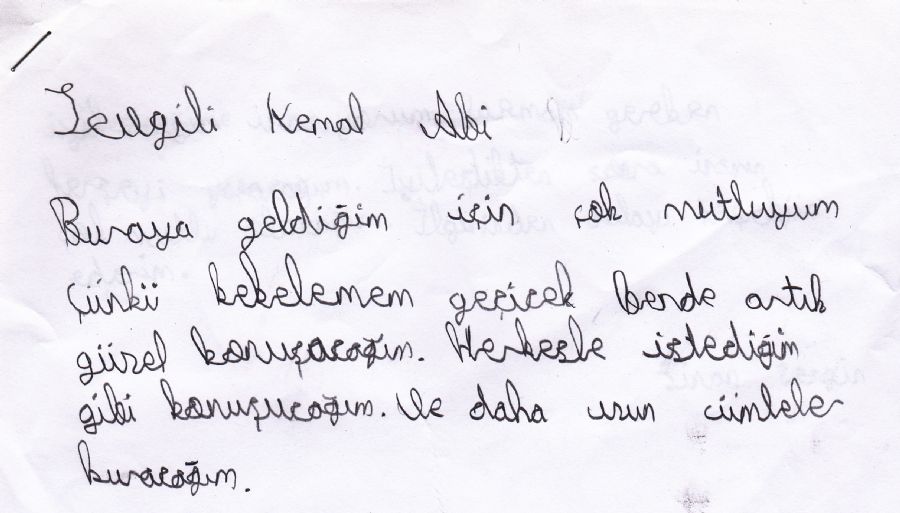 Sevgili Kemal Abi
Buraya geldiğim için çok mutluyum
çünkü kekelemem geçicek bende artık
güzel konuşacağım. Herkesle istediğim
gibi konuşucağım. Ve daha uzun cümleler
kuracağım.